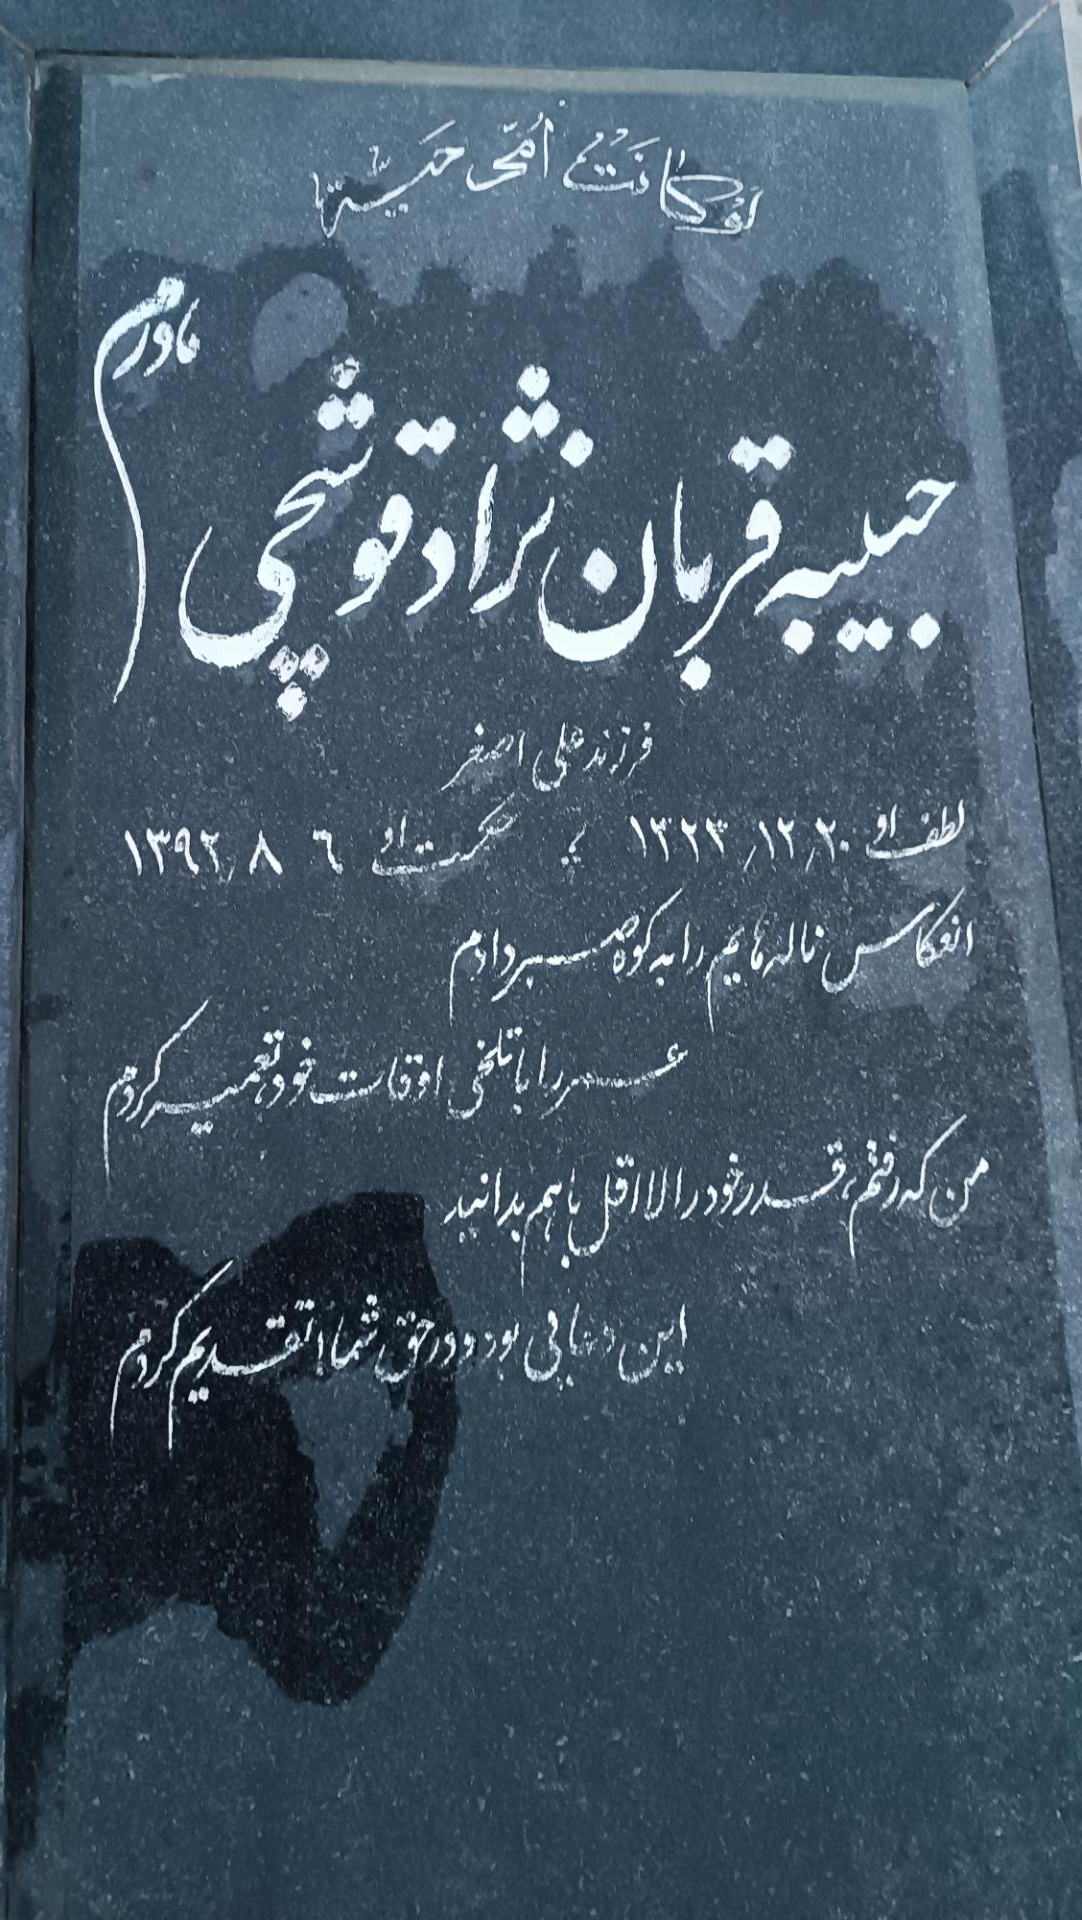 لَوْ كانَتْ أُمّی حَیَّتها
مادرم
حبیبه قربان نژاد قوشچی
فرزند علی اصغر
لطف او ١٣٢٣٫١٢٫٢٠ ؛ حکمت او ٦ ١٣٩٢٫٨
انعکاس ناله هایم را به کوه صبر دادم
عمر را با تلخی اوقات خود تعمیر کردم
من که رفتم، قدر خود را لااقل با هم بدانید
این دعایی بود و در حق شما تقدیم کردم